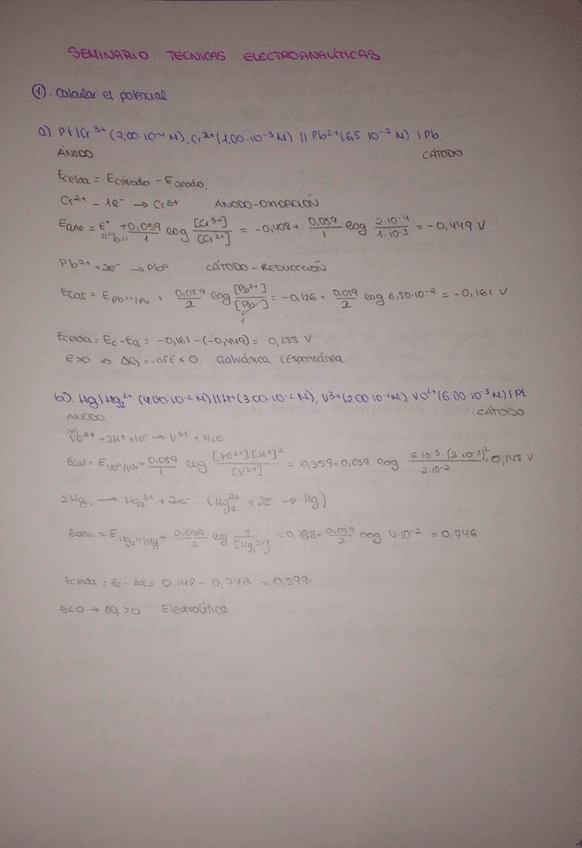 SEMINARIO: TECNICAS ELECTROANALÍTICAS
① Calcular el potencial
a) Pt | Cr³⁺ (2,00·10⁻⁴ M), Cr²⁺ (1,00·10⁻³ M) || Pb²⁺ (6,5·10⁻² M) | Pb
ÁNODO CÁTODO
Ecelda = Ecátodo - Eánodo
Cr²⁺ - 1e⁻ → Cr³⁺ ÁNODO-OXIDACIÓN
Eano = E° + 0,059/1 log [Cr³⁺]/[Cr²⁺] = -0,408 + 0,059/1 log 2·10⁻⁴/1·10⁻³ = -0,449 V
Pb²⁺ + 2e⁻ → Pb⁰ CÁTODO-REDUCCIÓN
Ecat = E Pb²⁺/Pb + 0,059/2 log [Pb²⁺]/[Pb] = -0,126 + 0,059/2 log 6,50·10⁻² = -0,161 V
1
Ecelda = Ec - Ea = -0,161 - (-0,449) = 0,288 V
E>0 ⇒ ΔG = -nFE < 0 Galvánica (Espontánea
b) Hg | Hg₂²⁺ (4,00·10⁻² M) || H⁺ (3,00·10⁻² M), V³⁺ (2,00·10⁻² M), VO²⁺ (6,00·10⁻³ M) | Pt
ÁNODO CÁTODO
VO²⁺ + 2H⁺ + 1e⁻ → V³⁺ + H₂O
Ecat = E VO²⁺/V³⁺ + 0,059/1 log [VO²⁺][H⁺]²/[V³⁺] = 0,359 - 0,059 log 6·10⁻³·(3·10⁻²)²/2·10⁻² = 0,148 V
2Hg → Hg₂²⁺ + 2e⁻ (Hg₂²⁺ + 2e⁻ → Hg)
Eano = E Hg₂²⁺/Hg + 0,059/2 log 1/[Hg₂²⁺] = 0,788 + 0,059/2 log 4·10⁻² = 0,746
Ecelda = Ec - Ea = 0,148 - 0,746 = 0,599
E<0 → ΔG > 0 Electrolítica